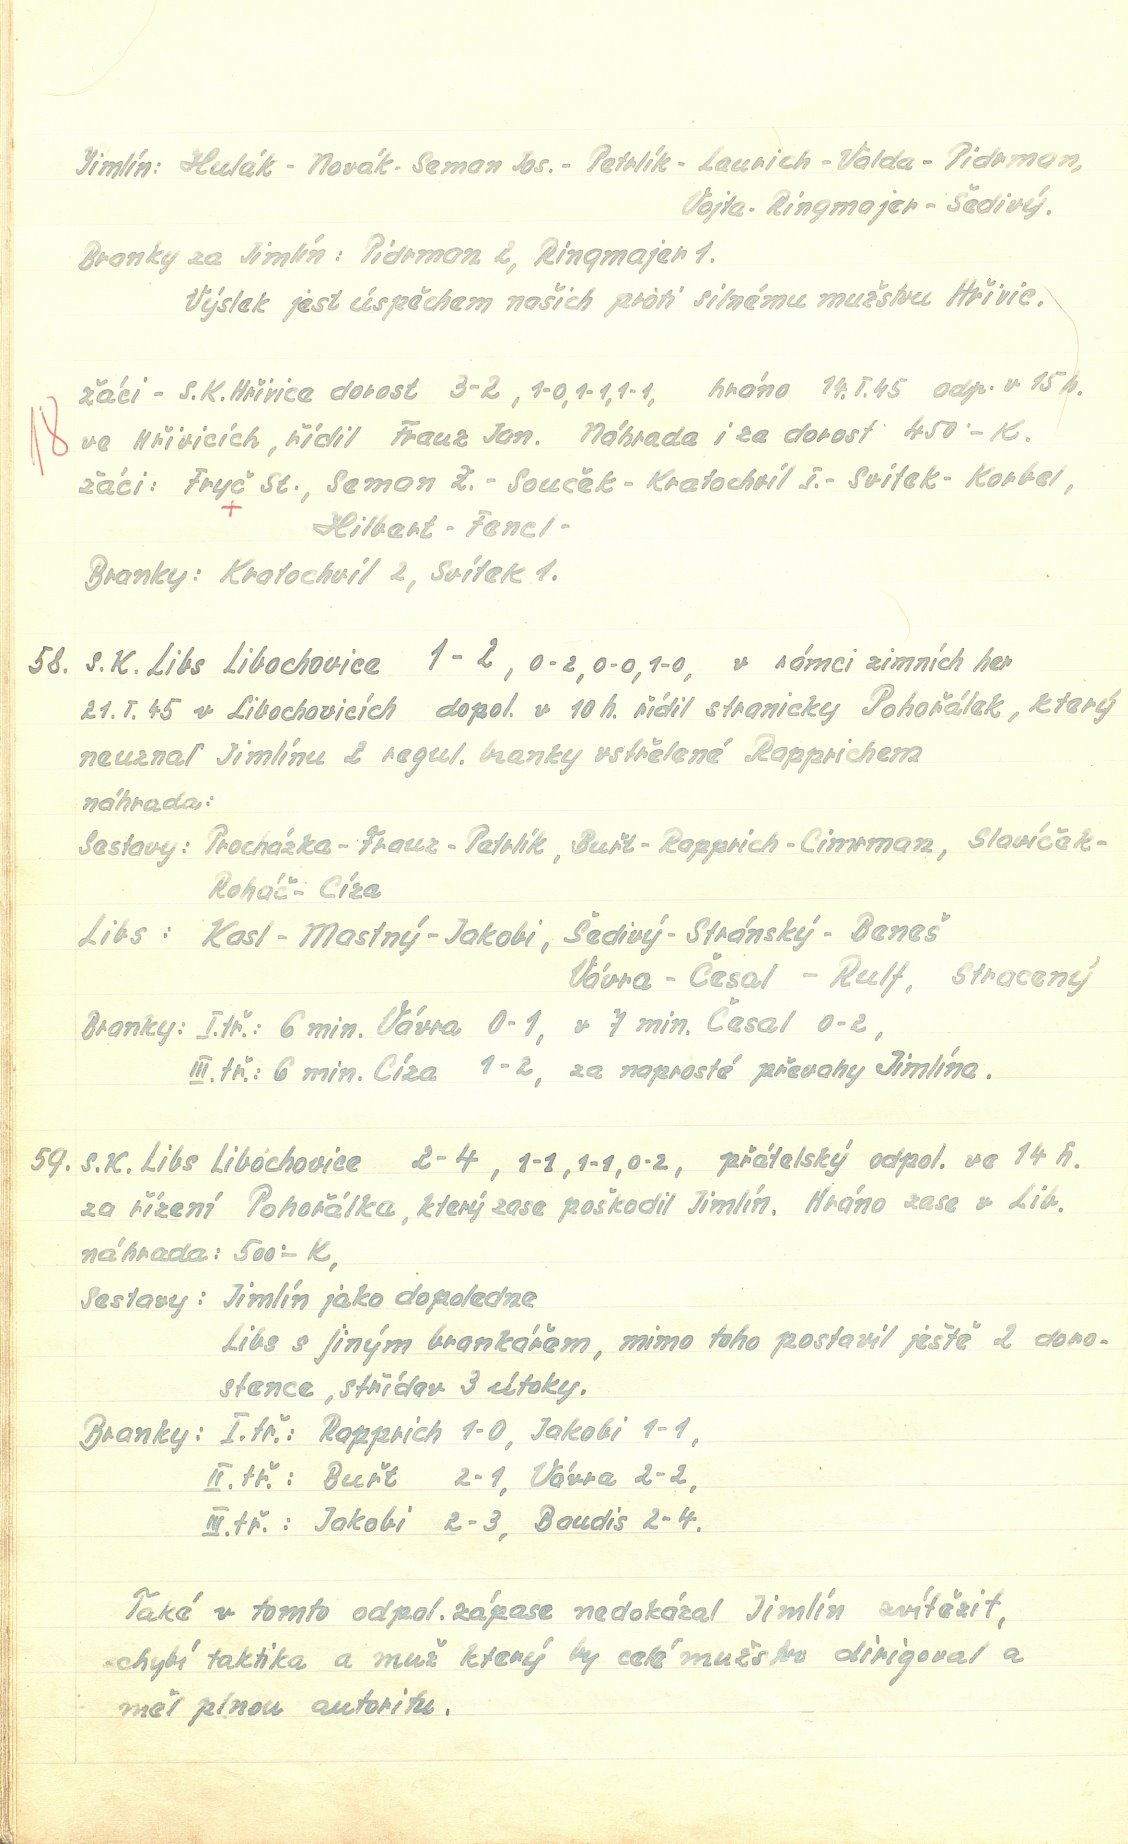 Jimlín: Hulák - Novák - Seman Jos. - Petrlík - Laurich - Valda - Pidrman,
Vojta - Ringmajer - Šedivý.
Branky za Jimlín: Pidrman 2, Ringmajer 1.
Výslek jest úspěchem našich proti silnému mužstvu Hřivic.
žáci - S.K. Hřivice dorost 3-2, 1-0, 1-1, 1-1, hráno 14.I.45 odp. v 15 h.
18 ve Hřivicích, řídil Frauz Jan. Náhrada i za dorost 450·- K.
žáci: Fryč St., Seman Z. - Souček - Kratochvíl I. - Svítek - Korbel,
+
Hilbert - Fencl -
Branky: Kratochvíl 2, Svítek 1.
58. S.K. Libs Libochovice 1-2, 0-2, 0-0, 1-0, v rámci zimních her
21.I.45 v Libochovicích dopol. v 10 h. řídil stranicky Pohořálek, který
neuznal Jimlínu 2 regul. branky vstřelené Rapprichem
náhrada:
Sestavy: Procházka - Frauz - Petrlík, Buřt - Rapprich - Cimrman, Slavíček -
Roháč - Cíza
Libs: Kasl - Mastný - Jakobi, Šedivý - Stránský - Beneš
Vávra - Česal - Rulf, Stracený
Branky: I.tř.: 6 min. Vávra 0-1, v 7 min. Česal 0-2,
III.tř.: 6 min. Cíza 1-2, za naprosté převahy Jimlína.
59. S.K. Libs Libochovice 2-4, 1-1, 1-1, 0-2, přátelský odpol. ve 14 h.
za řízení Pohořálka, který zase poškodil Jimlín. Hráno zase v Lib.
náhrada: 500·- K,
Sestavy: Jimlín jako dopoledne
Libs s jiným brankářem, mimo toho postavil ještě 2 doro-
stence, střídav 3 útoky.
Branky: I.tř.: Rapprich 1-0, Jakobi 1-1,
II.tř.: Buřt 2-1, Vávra 2-2,
III.tř.: Jakobi 2-3, Baudis 2-4.
Také v tomto odpol. zápase nedokázal Jimlín zvítězit,
chybí taktika a muž který by celé mužstvo dirigoval a
měl plnou autoritu.